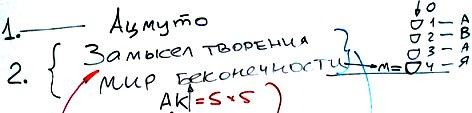 1. Ацмуто
2. Замысел творения
мир бесконечности
АК = 5 x 5
0
1 – А
2 – В
3 – А
М = 4 – Я